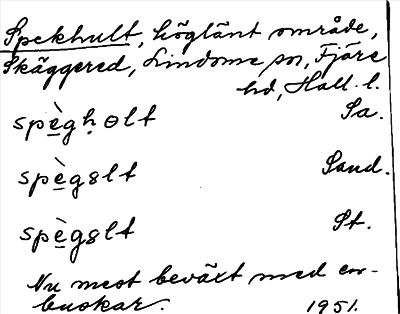 Spekhult, högläнt område,
Skäggered, Lindome sn, Fjäre
hd, Hall. l.
spè̱gḥɵlt Sa.
spè̱gɵlt Sand.
spè̱gɵlt St.
Nu mest beväxt med en-
buskar. 1951.